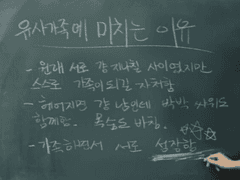 유사가족에 미치는 이유
- 원래 서로 걍 제낄 사이였지만
스스로 가족이 되길 자처함
- 헤어지면 걍 남인데 박박 싸워도
함께함. 목숨도 바침.
- 가족하면서 서로 성장함